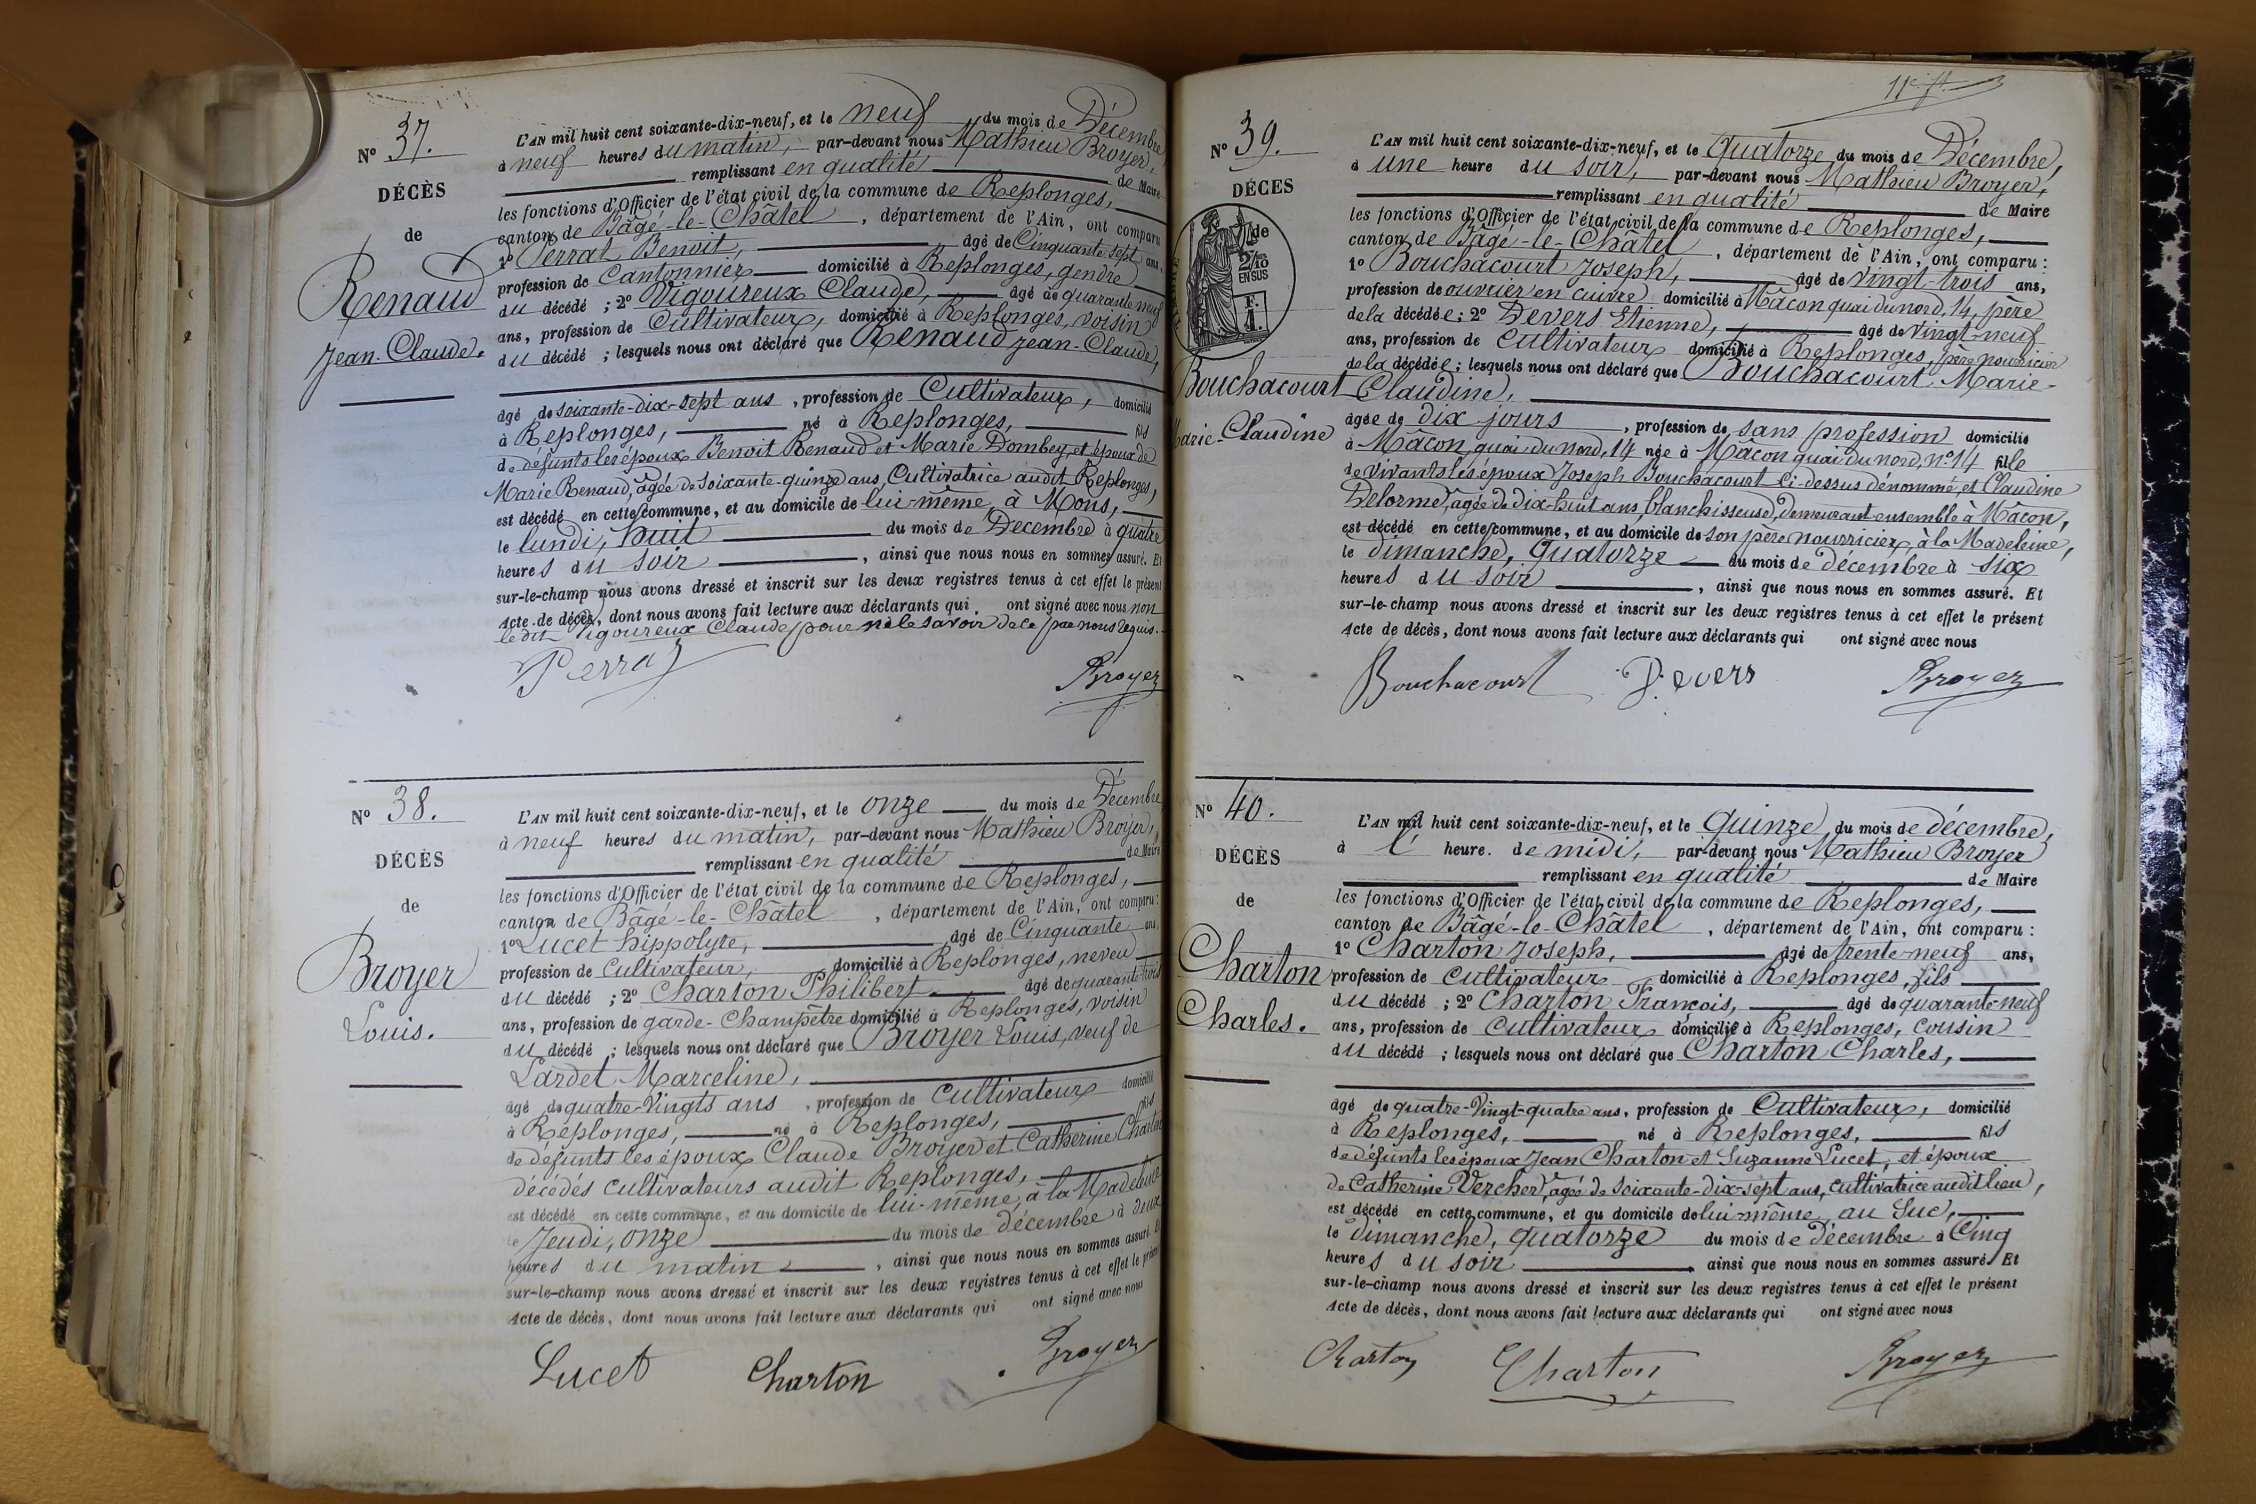 Nº 37.
DÉCÈS
de
Renaud
Jean-Claude.
L'AN mil huit cent soixante-dix-neuf, et le neuf du mois de Décembre,
à neuf heures du matin, par-devant nous Mathieu Broyer,
remplissant en qualité de Maire
les fonctions d'Officier de l'état civil de la commune de Replonges,
canton de Bâgé-le-Châtel, département de l'Ain, ont comparu
1º Perrat Benoit, âgé de Cinquante-sept ans,
profession de Cantonnier domicilié à Replonges, gendre
du décédé ; 2º Vigoureux Claude, âgé de quarante-neuf
ans, profession de Cultivateur, domicilié à Replonges, voisin
du décédé ; lesquels nous ont déclaré que Renaud Jean-Claude,
âgé de soixante-dix-sept ans, profession de Cultivateur, domicilié
à Replonges, né à Replonges, fils
de défunts les époux Benoit Renaud et Marie Dombey, et époux de
Marie Renaud, âgée de soixante-quinze ans, Cultivatrice audit Replonges,
est décédé en cette commune, et au domicile de lui-même, à Mons,
le lundi, huit du mois de Décembre à quatre
heures du soir, ainsi que nous nous en sommes assuré. Et
sur-le-champ nous avons dressé et inscrit sur les deux registres tenus à cet effet le présent
Acte de décès, dont nous avons fait lecture aux déclarants qui ont signé avec nous non
le dit Vigoureux Claude pour ne le savoir de ce par nous requis.
Perrat Broyer
Nº 38.
DÉCÈS
de
Broyer
Louis.
L'AN mil huit cent soixante-dix-neuf, et le onze du mois de Décembre
à neuf heures du matin, par-devant nous Mathieu Broyer,
remplissant en qualité de Maire
les fonctions d'Officier de l'état civil de la commune de Replonges,
canton de Bâgé-le-Châtel, département de l'Ain, ont comparu :
1º Lucet hippolyte, âgé de Cinquante ans,
profession de Cultivateur, domicilié à Replonges, neveu
du décédé ; 2º Charton Philibert âgé de quarante-trois
ans, profession de garde-Champêtre domicilié à Replonges, voisin
du décédé ; lesquels nous ont déclaré que Broyer Louis, veuf de
Lardet Marceline,
âgé de quatre-Vingts ans, profession de Cultivateur domicilié
à Replonges, né à Replonges, fils
de défunts les époux Claude Broyer et Catherine Charton
décédés cultivateurs audit Replonges,
est décédé en cette commune, et au domicile de lui-même, à la Madeleine
le Jeudi, onze du mois de décembre à deux
heures du matin, ainsi que nous nous en sommes assuré. Et
sur-le-champ nous avons dressé et inscrit sur les deux registres tenus à cet effet le présent
Acte de décès, dont nous avons fait lecture aux déclarants qui ont signé avec nous
Lucet Charton Broyer
Nº 39.
DÉCES
de
2/10
EN SUS
F.
1.
Bouchacourt
Marie-Claudine
L'AN mil huit cent soixante-dix-neuf, et le Quatorze du mois de Décembre,
à une heure du soir, par-devant nous Mathieu Broyer,
remplissant en qualité de Maire
les fonctions d'Officier de l'état civil de la commune de Replonges,
canton de Bâgé-le-Châtel, département de l'Ain, ont comparu :
1º Bouchacourt Joseph, âgé de Vingt-trois ans,
profession de ouvrier en cuivre domicilié à Mâcon quai du nord, 14, père
de la décédée ; 2º Devers Etienne, âgé de Vingt-neuf
ans, profession de Cultivateur domicilié à Replonges, père nourricier
de la décédée ; lesquels nous ont déclaré que Bouchacourt Marie-
Claudine,
âgée de dix jours, profession de sans profession domicilié
à Mâcon quai du nord, 14 née à Mâcon quai du nord, nº 14 fille
de vivants les époux Joseph Bouchacourt Ci-dessus dénommé, et Claudine
Delorme, âgée de dix-huit ans, blanchisseuse, demeurant ensemble à Mâcon,
est décédé en cette commune, et au domicile de son père nourricier, à la Madeleine,
le dimanche, Quatorze du mois de décembre à six
heures du soir, ainsi que nous nous en sommes assuré. Et
sur-le-champ nous avons dressé et inscrit sur les deux registres tenus à cet effet le présent
Acte de décès, dont nous avons fait lecture aux déclarants qui ont signé avec nous
Bouchacourt Devers Broyer
Nº 40.
DÉCÈS
de
Charton
Charles.
L'AN mil huit cent soixante-dix-neuf, et le Quinze du mois de décembre,
à l' heure de midi, par-devant nous Mathieu Broyer
remplissant en qualité de Maire
les fonctions d'Officier de l'état civil de la commune de Replonges,
canton de Bâgé-le-Châtel, département de l'Ain, ont comparu :
1º Charton Joseph, âgé de trente-neuf ans,
profession de Cultivateur domicilié à Replonges, fils
du décédé ; 2º Charton François, âgé de quarante-neuf
ans, profession de Cultivateur domicilié à Replonges, cousin
du décédé ; lesquels nous ont déclaré que Charton Charles,
âgé de quatre-Vingt-quatre ans, profession de Cultivateur, domicilié
à Replonges, né à Replonges, fils
de défunts les époux Jean Charton et Suzanne Lucet, et époux
de Catherine Vercher, âgée de Soixante-dix-sept ans, cultivatrice audit lieu,
est décédé en cette commune, et au domicile de lui-même au Luc,
le dimanche, quatorze du mois de décembre à Cinq
heures du soir, ainsi que nous nous en sommes assuré. Et
sur-le-champ nous avons dressé et inscrit sur les deux registres tenus à cet effet le présent
Acte de décès, dont nous avons fait lecture aux déclarants qui ont signé avec nous
Charton Charton Broyer